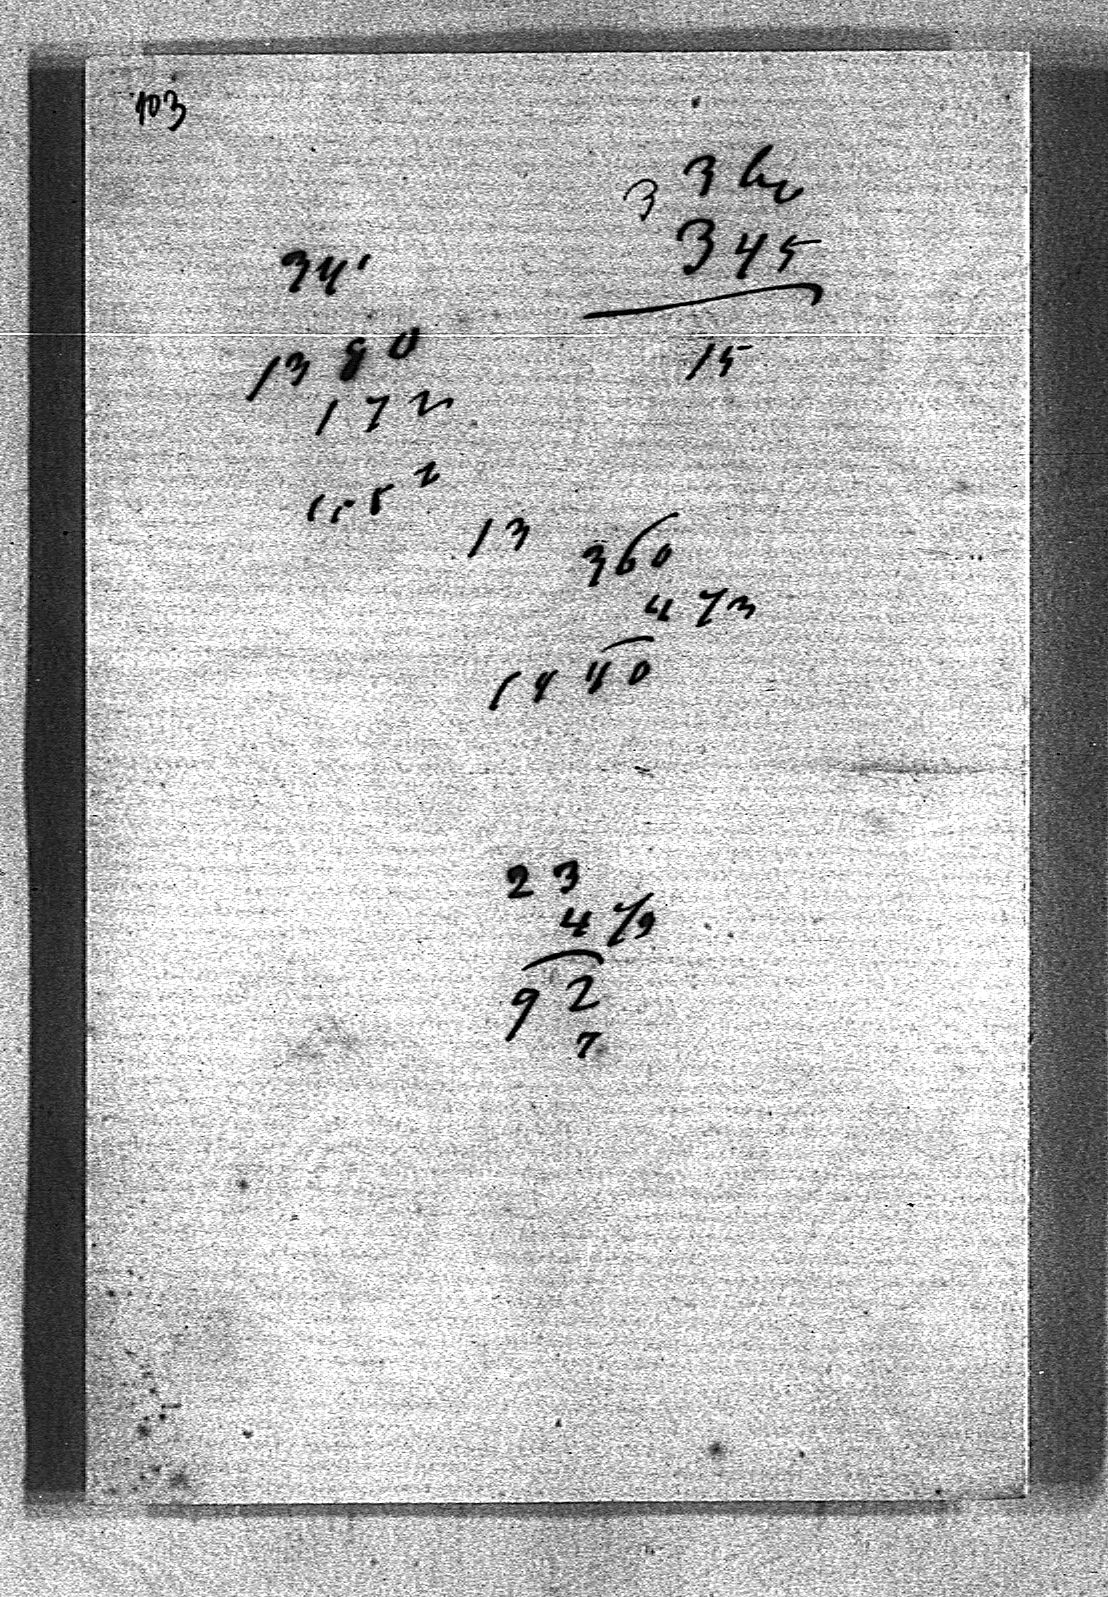 103
3 360
345
15
341
1380
172
1552
13
360
473
1440
23
4 79
92
7